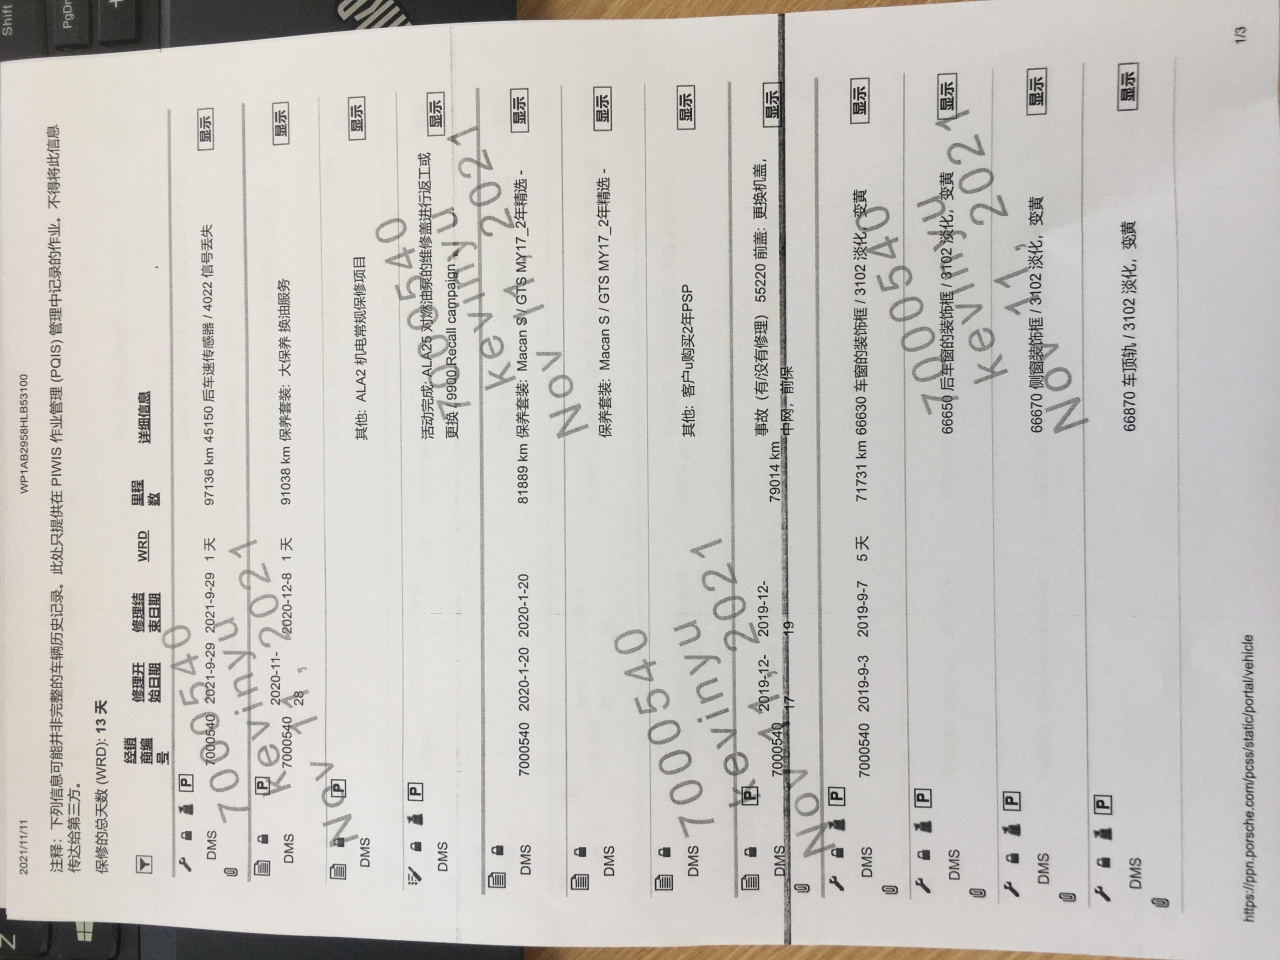 2021/11/11
WP1AB2958HLB53100
注释：下列信息可能并非完整的车辆历史记录。此处只提供在 PIWIS 作业管理 (PQIS) 管理中记录的作业。不得将此信息
传达给第三方。
保修的总天数 (WRD): 13 天
经销商编号 修理开始日期 修理结束日期 WRD 里程数 详细信息
P
DMS 7000540 2021-9-29 2021-9-29 1 天 97136 km 45150 后车速传感器 / 4022 信号丢失 显示
P
DMS 7000540 2020-11-28 2020-12-8 1 天 91038 km 保养套装: 大保养 换油服务 显示
P
DMS 其他: ALA2 机电常规保修项目 显示
P
DMS 活动完成: ALA25 对燃油泵的维修盖进行返工或 显示
更换 / 9900 Recall campaign
DMS 7000540 2020-1-20 2020-1-20 81889 km 保养套装: Macan S / GTS MY17_2年精选 - 显示
DMS 保养套装: Macan S / GTS MY17_2年精选 - 显示
DMS 其他: 客户u购买2年PSP 显示
P
DMS 7000540 2019-12-17 2019-12-19 79014 km 事故（有/没有修理） 55220 前盖: 更换机盖, 显示
中网, 前保
P
DMS 7000540 2019-9-3 2019-9-7 5 天 71731 km 66630 车窗的装饰框 / 3102 淡化，变黄 显示
P
DMS 66650 后车窗的装饰框 / 3102 淡化，变黄 显示
P
DMS 66670 侧窗装饰框 / 3102 淡化，变黄 显示
P
DMS 66870 车顶轨 / 3102 淡化，变黄 显示
7000540
kevinyu
Nov 11, 2021
7000540
kevinyu
Nov 11, 2021
7000540
kevinyu
Nov 11, 2021
7000540
kevinyu
Nov 11, 2021
https://ppn.porsche.com/pcss/static/portal/vehicle
1/3
Shift
PgDn
Z